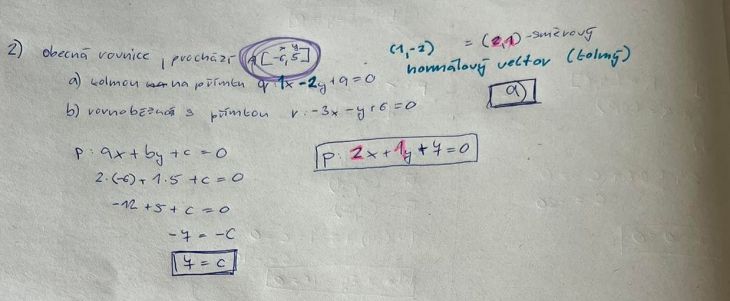 2) obecná rovnice, prochází A[-6, 5]
x y
(1,-2) = (2,1) - směrový
normálový vektor (kolmý)
a) kolmou na přímku q: 1x - 2y + 9 = 0
a)
b) rovnoběžná s přímkou r: -3x - y + 6 = 0
p: ax + by + c = 0
p: 2x + 1y + 7 = 0
2·(-6) + 1·5 + c = 0
-12 + 5 + c = 0
-7 = -c
7 = c